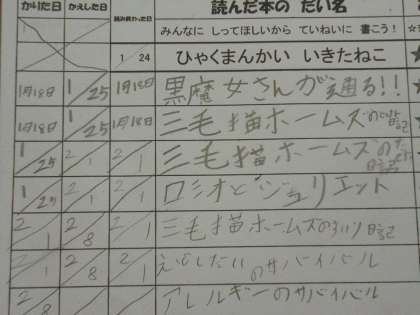 かりた日 かえした日 読み終わった日 読んだ本の だい名
みんなに しってほしいから ていねいに 書こう!
1 24 ひゃくまんかい いきたねこ
1月18日 1/25 1月18日 黒魔女さんが通る!!
1月18日 1/25 1月18日 三毛猫ホームズの 日記
1/25 2/1 2/1 三毛猫ホームズの 日記
1/25 2/1 2/1 ロミオとジュリエット
2/1 2/8 2/1 三毛猫ホームズの 日記
2/1 2/8 2/1 のサバイバル
2/8 アレルギーのサバイバル